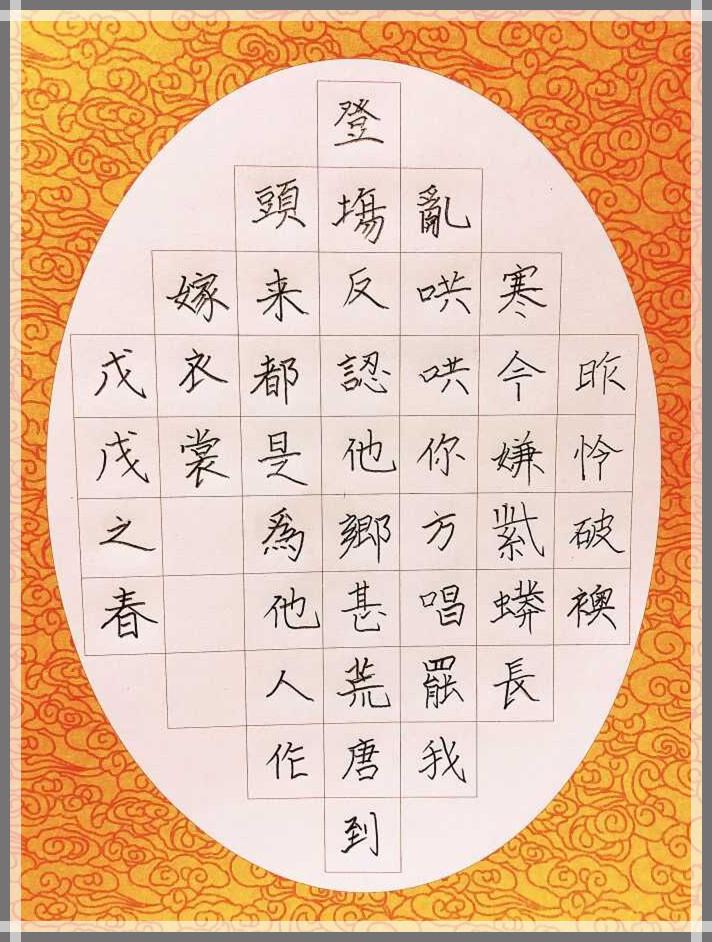 昨怜破襖
寒今嫌紫蟒長
亂哄哄你方唱罷我
登場反認他鄉甚荒唐到
頭来都是為他人作
嫁衣裳
戊戌之春